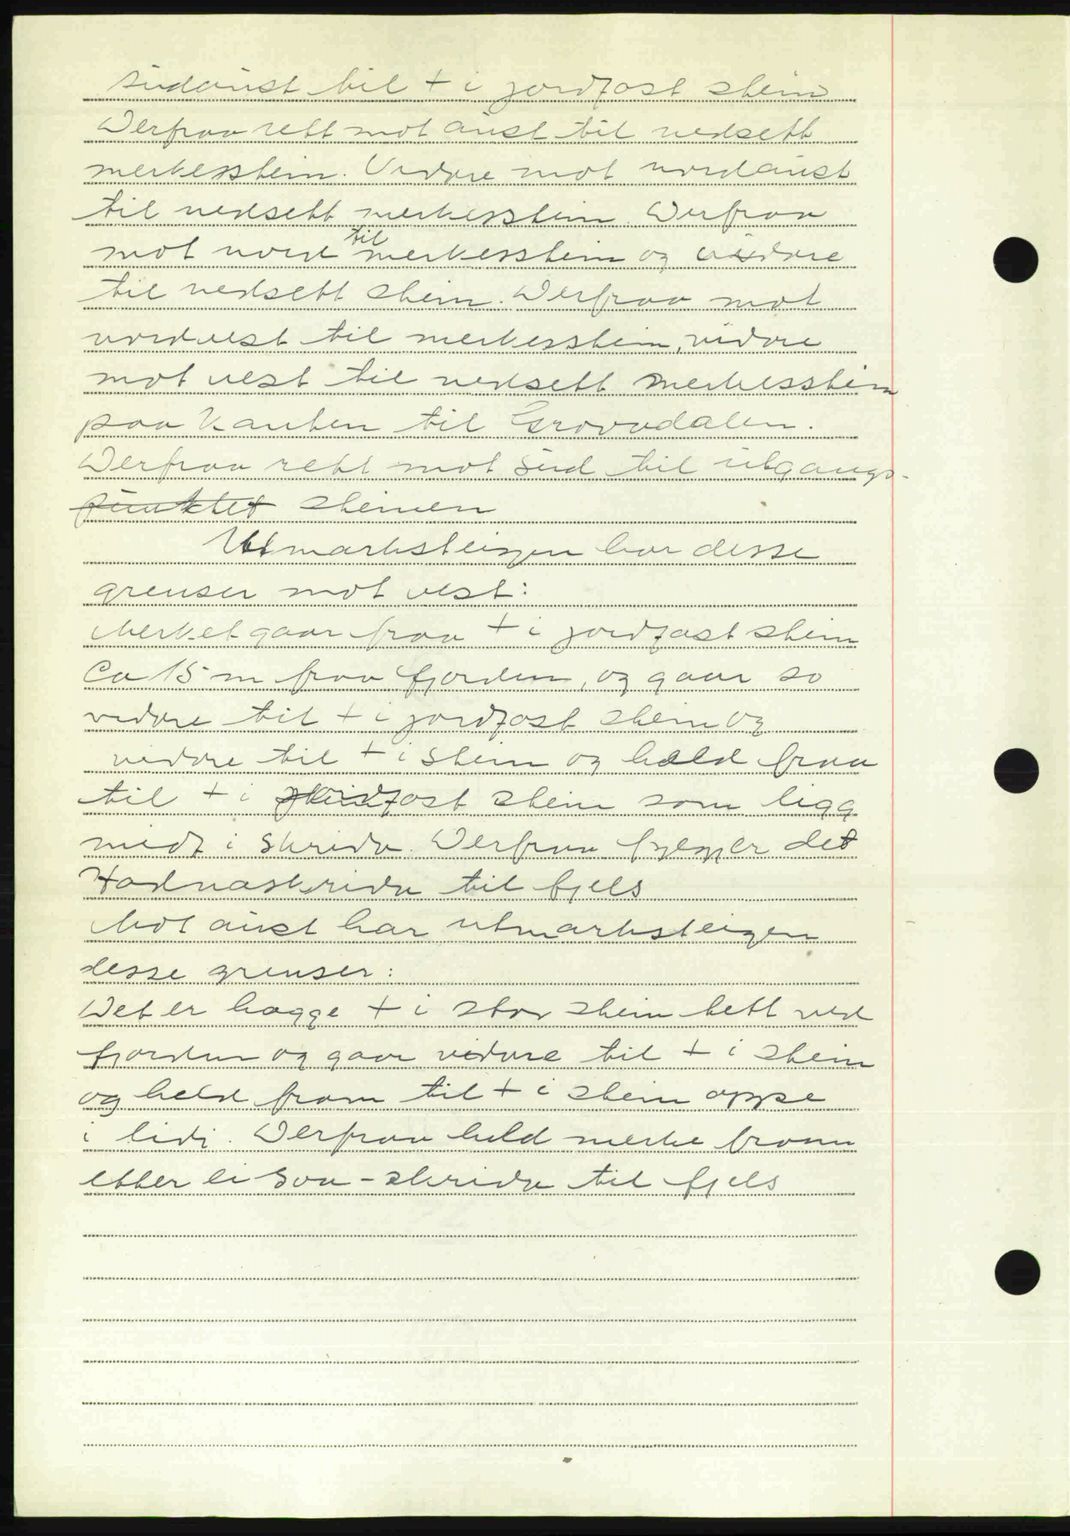 sudaust til + i jordfast stein
Derfraa rett mot aust til nedsett
merkesstein. Vidare mot nordaust
til nedsett merkesstein. Derfraa
mot nord til merkesstein og vidare
til nedsett stein. Derfraa mot
nordvest til merkesstein, vidare
mot vest til nedsett merkesstein
paa kanten til Grovadalen.
Derfraa rett mot sud til utgangs-
punktet steinen
Utmarksteigen har desse
grenser mot vest:
Merket gaar fraa + i jordfast stein
Ca 15 m fraa fjorden, og gaar so
vidare til + i jordfast stein og
vidare til + i stein og held fraa
til + i jordfast stein som ligg
midt i skrida. Derfraa fylgjer det
Hadnaskrida til fjels
Mot aust har utmarksteigen
desse grenser:
Det er hogge + i stor stein tett ved
fjorden og gaar vidare til + i stein
og held fram til + i stein oppe
i lidi. Derfraa held merke fram
etter ei Soa-skrida til fjels